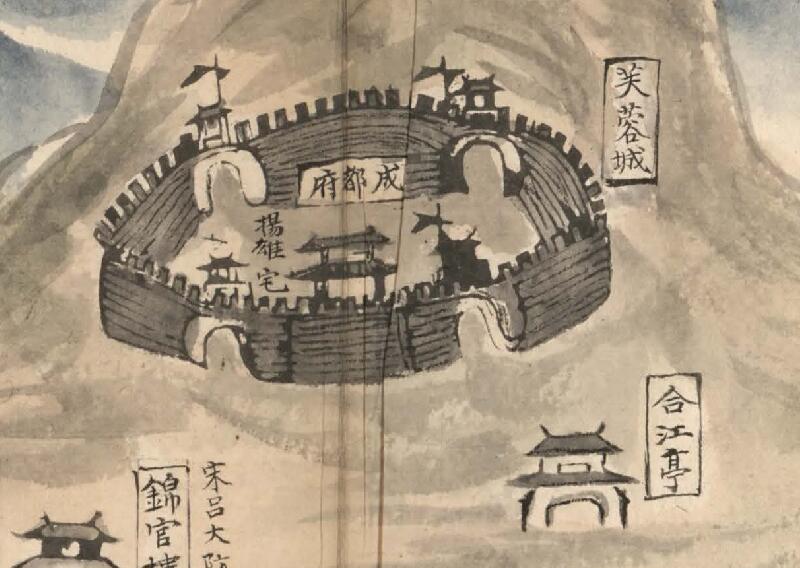 芙蓉城
成都府
揚雄宅
合江亭
宋呂大防
錦官樓